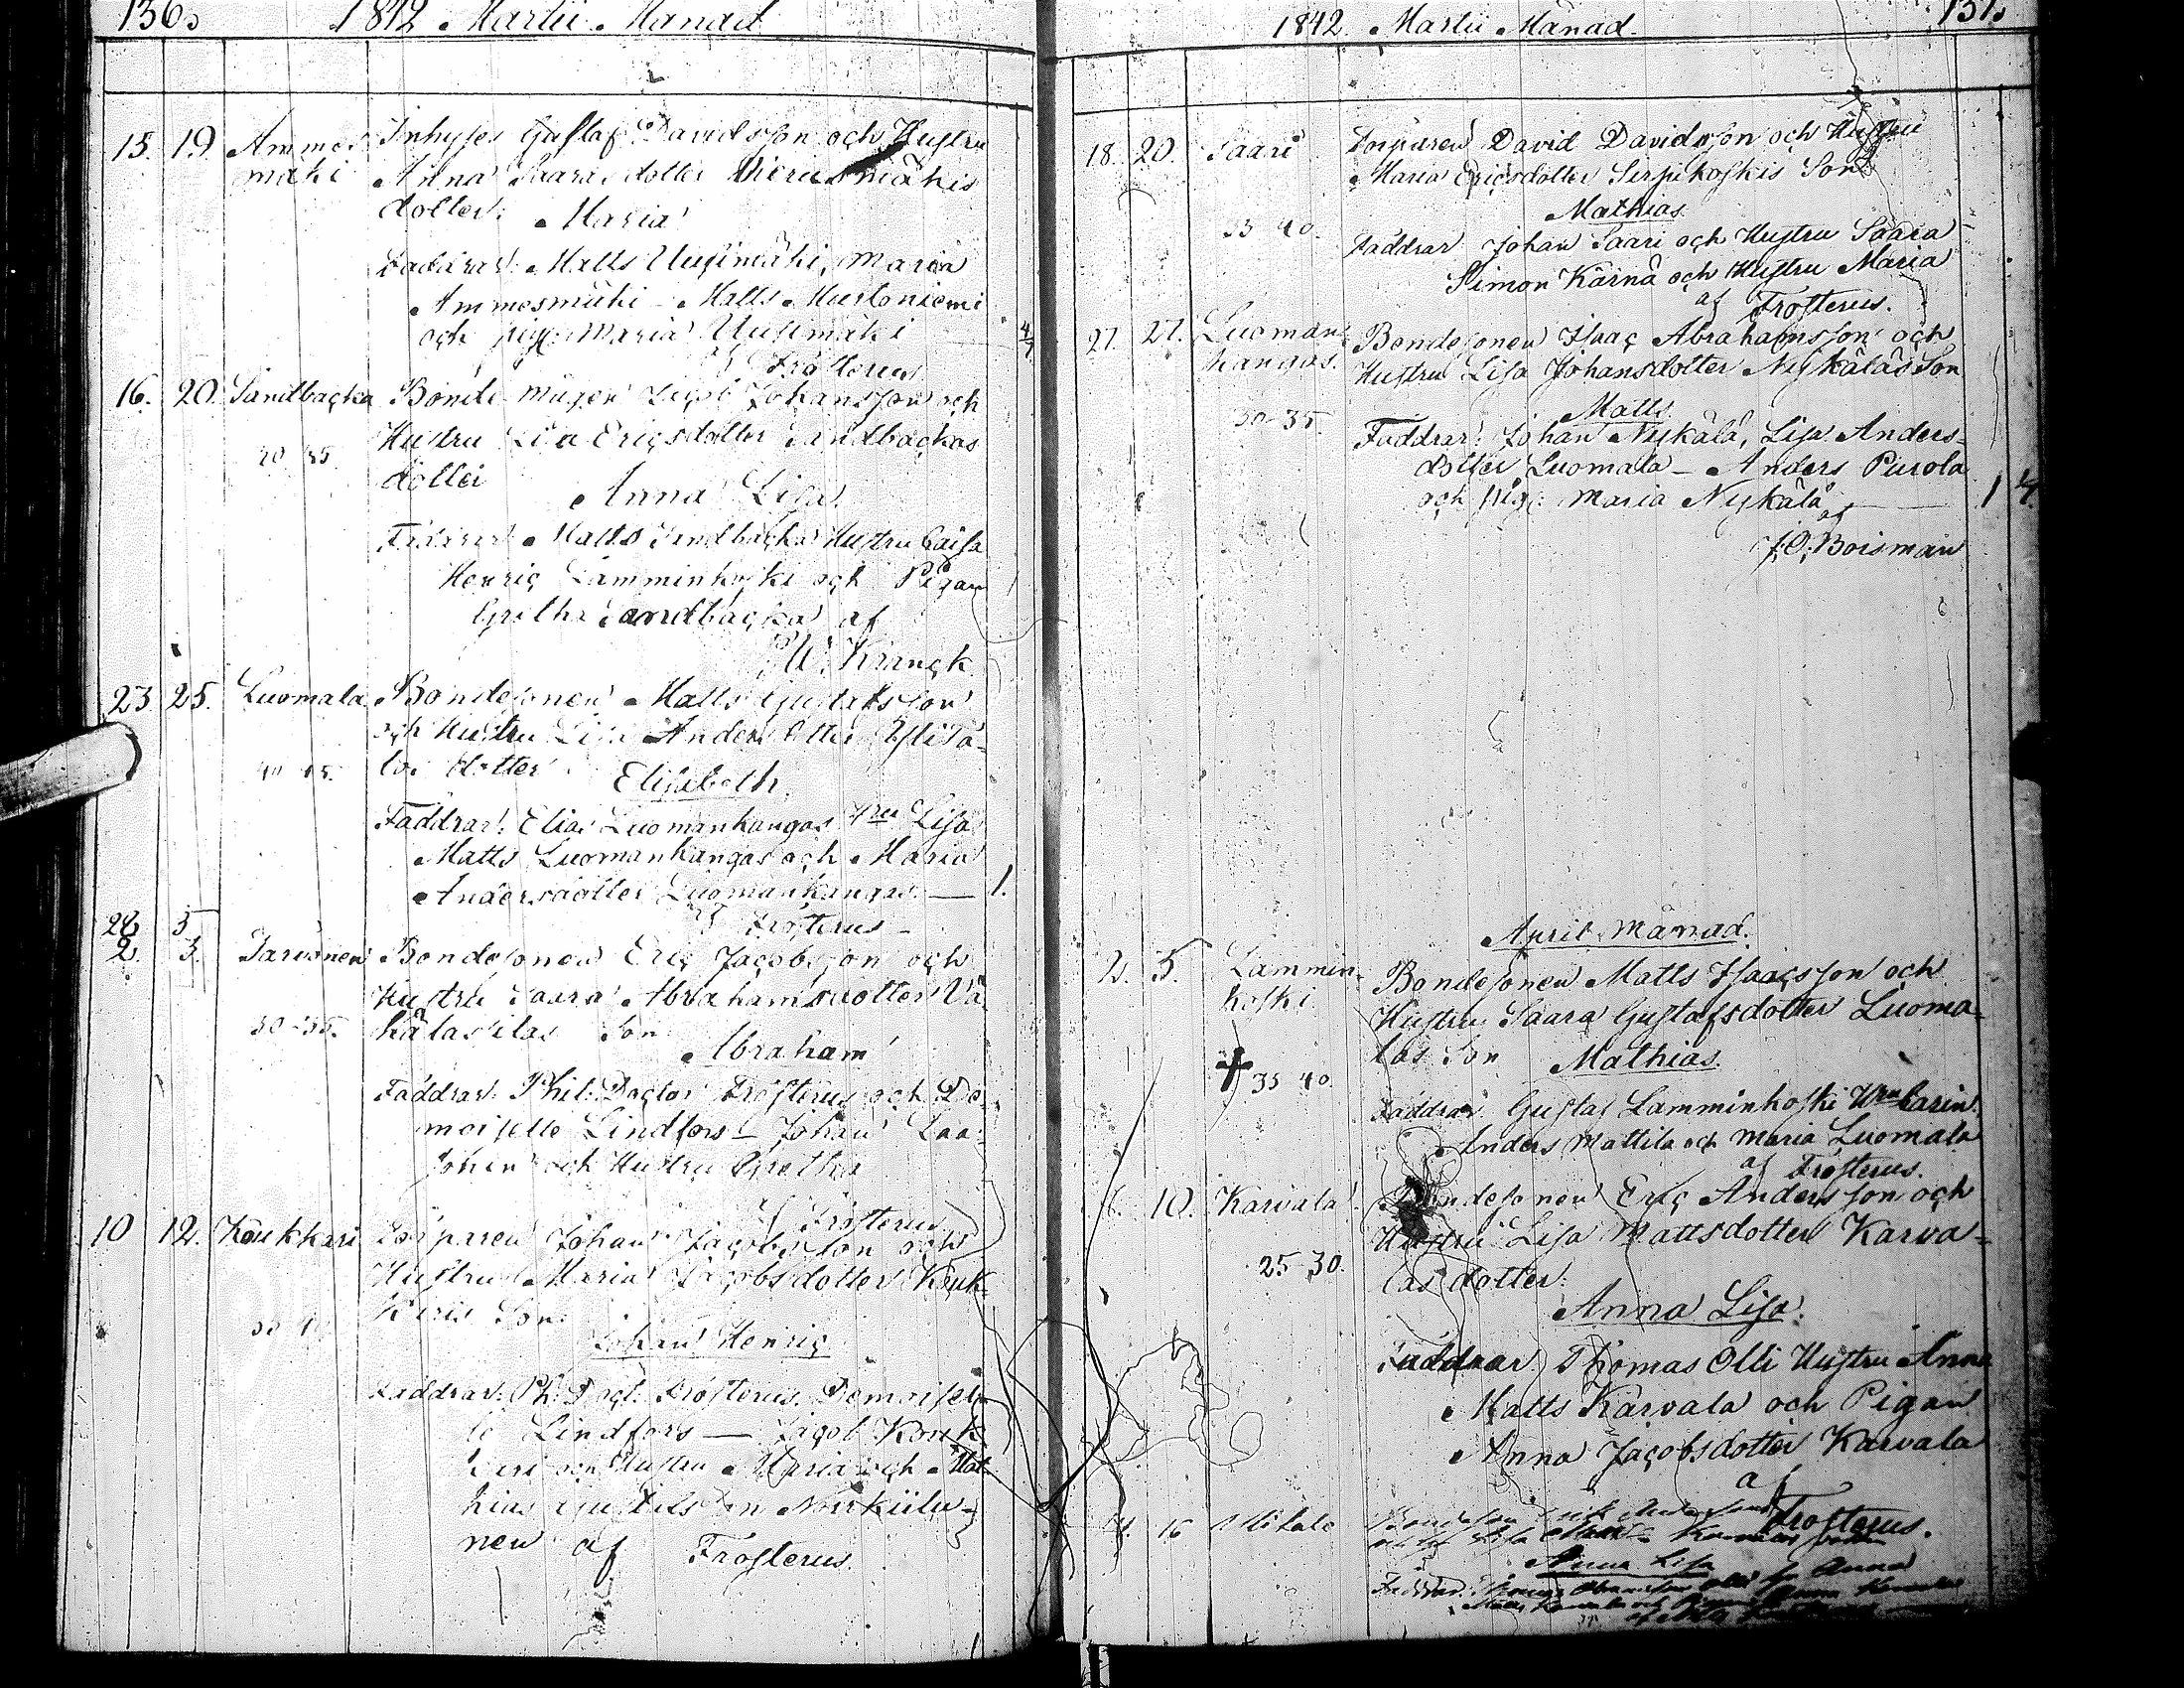 136.
1842 Martii Månad
15. 19 Ammes Inhyses Gustaf Davidsson och Hustru
mäki Anna Saara dotter
dotter: Maria
Faddrar: Matts Uusimäki, Maria
Ammesmäki - Matts Mustoniemi
och pig: Maria Uusimäki 4/7
af Frosterus
16. 20. Sandbacka Bonde mågen Jacob Johansson och
Hustru Lisa Ericsdotter Sandbackas
30 35. dotter
Anna Lisa.
Faddrar Matts Sandbacka Hustru Caisa
Henric Lamminkoski och Pigan
Gretha Sandbacka af
W. Kranck
23. 25. Luomala Bondesonen Matts Gustafsson
och Hustru Lisa Andersdotter Ylita-
40 45. los dotter
Elisabeth.
Faddrar: Elias Luomankangas Hru Lisa
Matts Luomankangas och Maria
Andersdotter Luomankangas — 1.
af Frosterus
28 5
2. 3. Bondesonen Eric Jacobsson och
Hustru Saara Abrahamsdotter Vä
30-35. Son
Abraham
Faddrar: Phil: Doctor Frosterus och De-
moiselle Lindfors - Johan Laa-
och Hustru Gretha
af Frosterus
10 12. Koukkari Torparen Johan Jacobsson och
Hustru Maria Jacobsdotter Kouk-
karis Son
Johan Henric
Faddrar: Ph: Doct: Frosterus. Demoisel-
le Lindfors — Jacob Kouk-
kari och Hustru Maria och Mat-
hias Gustafsson
nen af Frosterus.
137.
1842. Martii Månad.
18. 20. Saari Torparen David Davidsson och Hustru
Maria Ericsdotter Sirpikoskis Son
Mathias.
35 40. Faddrar Johan Saari och Hustru Saara
Simon Kärnä och Hustru Maria
af Frosterus.
27. 27. Luoman Bondesonen Isaac Abrahamsson och
kangas. Hustru Lisa Johansdotter Nykäläs Son
Matts.
30-35. Faddrar: Johan Nykälä, Lisa Anders-
dotter Luomala - Anders Purola
och pig: Maria Nykälä — 1 4.
af
J.O. Boisman
April Månad.
2. 5. Lammin- Bondesonen Matts Isaacsson och
koski Hustru Saara Gustafsdotter Luoma-
las Son Mathias.
35 40. Faddrar Gustaf Lamminkoski Hru Carin.
Anders Mattila och Maria Luomala
af Frosterus.
6. 10. Karvala Bondesonen Eric Andersson och
Hustru Lisa Mattsdotter Karva-
25-30. las dotter:
Anna Lisa.
Faddrar Thomas Olli Hustru Anna
Matts Karvala och Pigan
Anna Jacobsdotter Karvala
af
Frosterus.
16
Anna Lisa